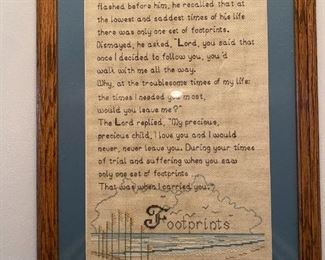 flashed before him, he recalled that at
the lowest and saddest times of his life
there was only one set of footprints.
Dismayed, he asked, "Lord, you said that
once I decided to follow you, you'd
walk with me all the way.
Why, at the troublesome times of my life;
the times I needed you most,
would you leave me?"
The Lord replied, "My precious,
precious child, I love you and I would
never, never leave you. During your times
of trial and suffering when you saw
only one set of footprints...
That was when I carried you."
Footprints